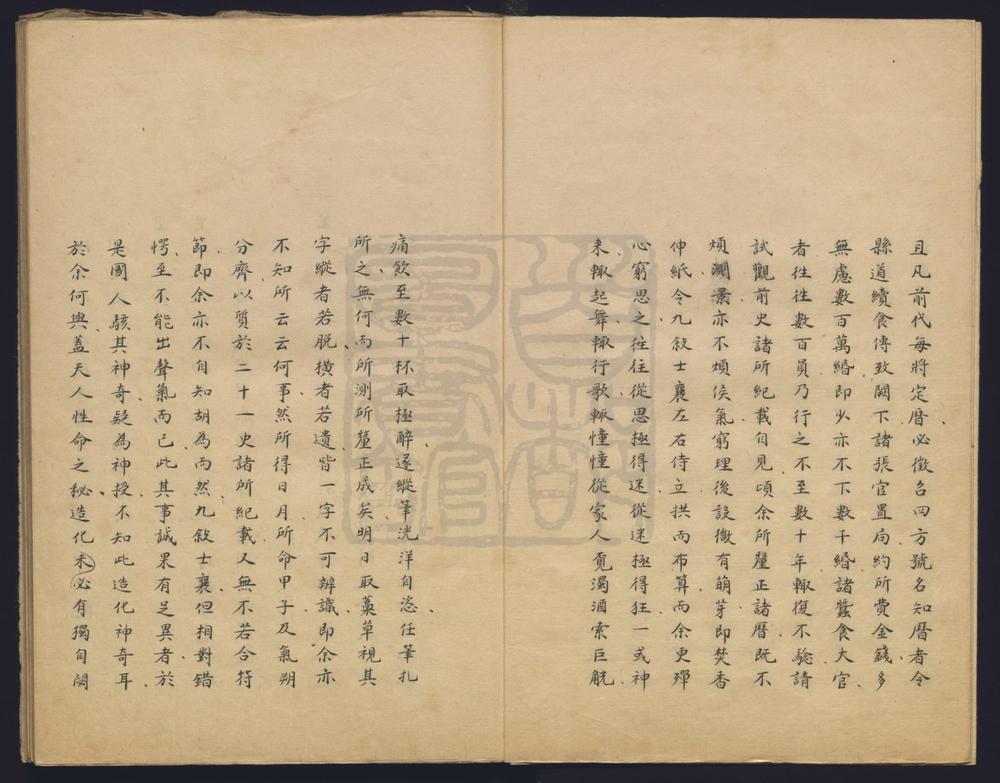 且凡前代每將定曆必徵召四方號名知曆者令
縣道續食傳致闕下諸張官置局約所費金錢多
無慮數百萬緡即少亦不下數千緡諸蠶食大官
者往往數百員乃行之不至數十年輙復不驗請
試觀前史諸所紀載自見頃余所釐正諸曆既不
煩測景亦不煩候氣窮理後設微有萌芽即焚香
伸紙令九敘士襄左右侍立拱而布算而余更殫
心窮思之往往從思極得迷從迷極得狂一或神
来輙起舞輙行歌輙憧憧從家人覓濁酒索巨觥
痛飲至數十杯取極醉遂縱筆洸洋自恣任筆扎
所之無何而所測所釐正成矣明日取藁草視其
字縱者若脱橫者若遺皆一字不可辨識即余亦
不知所云云何事然所得日月所命甲子及氣朔
分齊以質於二十一史諸所紀載又無不若合符
節即余亦不自知胡為而然九敘士襄但相對錯
愕至不能出聲氣而已此其事誠果有足異者於
是國人駭其神奇疑為神授不知此造化神奇耳
於余何與蓋天人性命之秘造化未必有獨自闕